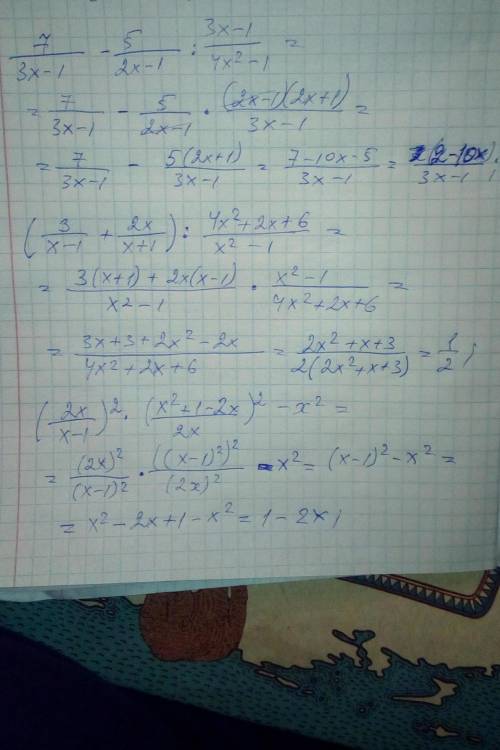 7/(3x-1) - 5/(2x-1) : (3x-1)/(4x²-1) =
= 7/(3x-1) - 5/(2x-1) · (2x-1)(2x+1)/(3x-1) =
= 7/(3x-1) - 5(2x+1)/(3x-1) = (7-10x-5)/(3x-1) = (2-10x)/(3x-1);
(3/(x-1) + 2x/(x+1)) : (4x²+2x+6)/(x²-1) =
= (3(x+1)+2x(x-1))/(x²-1) · (x²-1)/(4x²+2x+6) =
= (3x+3+2x²-2x)/(4x²+2x+6) = (2x²+x+3)/(2(2x²+x+3)) = 1/2;
(2x/(x-1))² · ((x²+1-2x)/2x)² - x² =
= (2x)²/(x-1)² · ((x-1)²)²/(2x)² - x² = (x-1)² - x² =
= x² - 2x + 1 - x² = 1 - 2x;